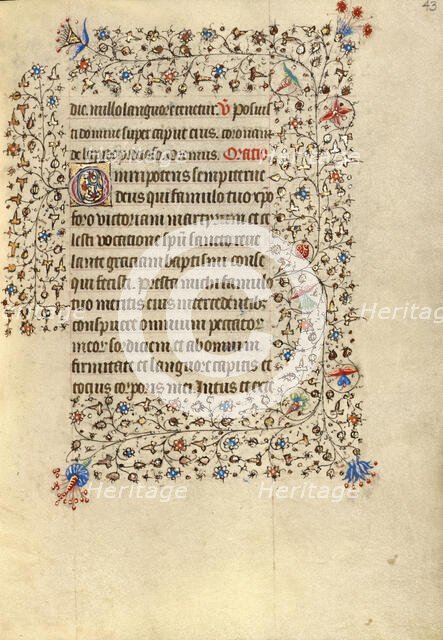 43
die. nullo langore tenetur. V Posuis
ti domine super caput eius. coronam
de lapide precioso. Oremus. Oratio
Omnipotens sempiterne
deus qui famulo tuo xpo
foro victoriam martyrum et ce
lesti vocatione spū sancto reue
lante graciam baptismi conse
qui fecisti. Preste michi famulo
tuo meritis eius intercedentib;
conspuere omnium peccator
meor sordidem et ab omni in
firmitate et languore capitis et
tocius corporis mei. Intus et exte
Heritage
Heritage
Heritage
Heritage